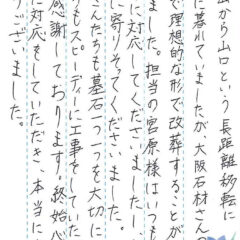 山から山口という長距離移転に
に暮れていましたが大阪石材さんの
で理想的な形で改葬することが
ました。担当の宮原様はいつも
に対応してくださいましたし、
に寄りそってくださいました。
さんたちも墓石一つ一つを大切に
うもスピーディーに工事をしていた
感謝しております。終始
に対応をしていただき、本当に
うございました。